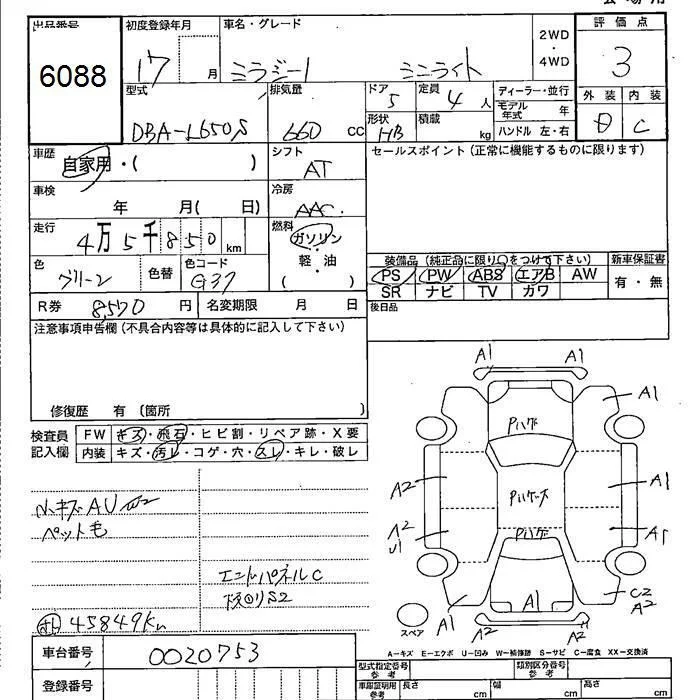 出品番号
6088
初度登録年月
17 月
車名・グレード
ミラジーノ ミニライト
2WD
・
4WD
評価点
3
外装 内装
C
型式
DBA-L650S
排気量
660 CC
ドア
5
定員
4 人
形状
HB
積載
kg
ディーラー・並行
モデル年式 年
ハンドル 左・右
車歴
自家用・( )
シフト
AT
セールスポイント(正常に機能するものに限ります)
車検
年 月( 日)
冷房
AAC
走行
4万5千850 km
燃料
ガソリン
軽・油
( )
色
グリーン
色替
色コード
G37
装備品(純正品に限り○をつけて下さい)
PS PW ABS エアB AW
SR ナビ TV カワ
新車保証書
有・無
R券 8,570 円
名変期限 月 日
後日品
注意事項申告欄(不具合内容等は具体的に記入して下さい)
修復歴 有(箇所 )
検査員
記入欄
FW キズ・飛石・ヒビ割・リペア跡・X要
内装 キズ・汚レ・コゲ・穴・スレ・キレ・破レ
小キズAU
ペット毛
エンドパネルC
下廻りS2
45849km
A1 A1
A1
Pハゲ
A2
A1
A2
U1
Pハゲ
A1
C2
A2
A1
A1
A2
A2
スペア
A-キズ E-エクボ U-凹み W-補修跡 S-サビ C-腐食 XX-交換済
車台番号
0020753
登録番号
型式指定番号
参考
類別区分番号
参考
車庫証明用
参考
長さ cm
幅 cm
高さ cm